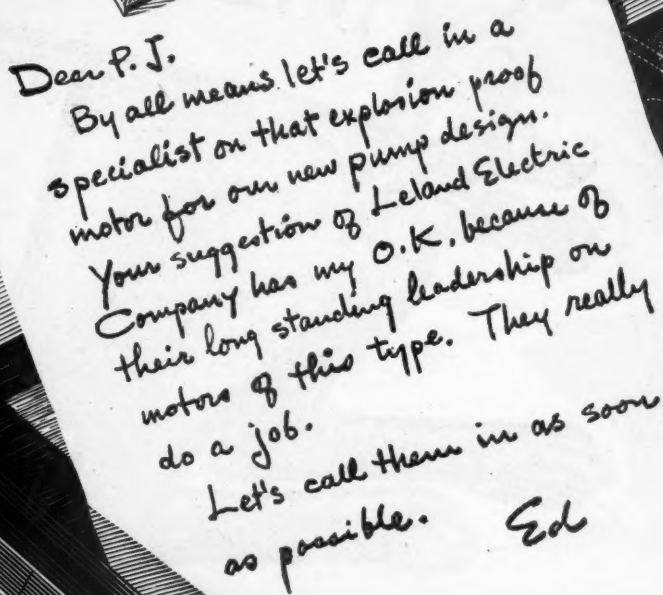 Dear P. J.
By all means let's call in a
specialist on that explosion proof
motor for our new pump design.
Your suggestion of Leland Electric
Company has my O.K. because of
their long standing leadership on
motors of this type. They really
do a job.
Let's call them in as soon
as possible.
Ed